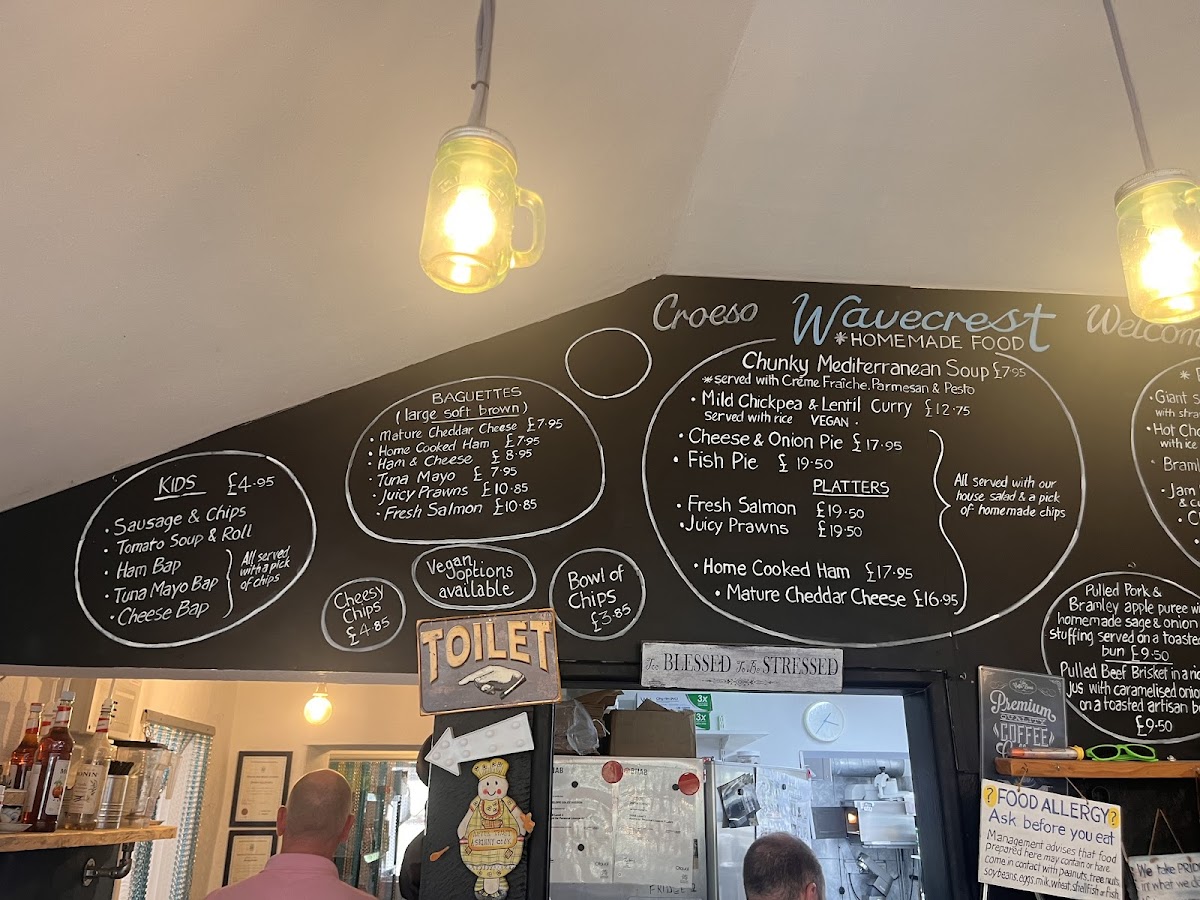 Croeso Wavecrest Welcom
*HOMEMADE FOOD
KIDS £4.95
• Sausage & Chips
• Tomato Soup & Roll
• Ham Bap
• Tuna Mayo Bap
• Cheese Bap
All served
with a pick
of chips
BAGUETTES
(large soft brown)
• Mature Cheddar Cheese £7.95
• Home Cooked Ham £7.95
• Ham & Cheese £8.95
• Tuna Mayo £7.95
• Juicy Prawns £10.85
• Fresh Salmon £10.85
Cheesy
Chips
£4.85
Vegan
options
available
Bowl of
Chips
£3.85
Chunky Mediterranean Soup £7.95
*served with Créme Fraîche, Parmesan & Pesto
• Mild Chickpea & Lentil Curry £12.75
served with rice VEGAN.
• Cheese & Onion Pie £17.95
• Fish Pie £19.50
PLATTERS
• Fresh Salmon £19.50
• Juicy Prawns £19.50
• Home Cooked Ham £17.95
• Mature Cheddar Cheese £16.95
All served with our
house salad & a pick
of homemade chips
• Giant S
with stra
• Hot Cho
with ice
• Braml
• Jam
Pulled Pork &
Bramley apple puree wi
homemade sage & onion
stuffing served on a toasted
bun £9.50
Pulled Beef Brisket in a
jus with caramelised onio
on a toasted artisan b
£9.50
TOILET
Too BLESSED To Be STRESSED
Premium
QUALITY
COFFEE
FRIDGE
? FOOD ALLERGY ?
Ask before you eat
Management advises that food
prepared here may contain or have
come in contact with peanuts, tree nuts,
soybeans, eggs, milk, wheat, shellfish or fish
We take PRID
in what we d